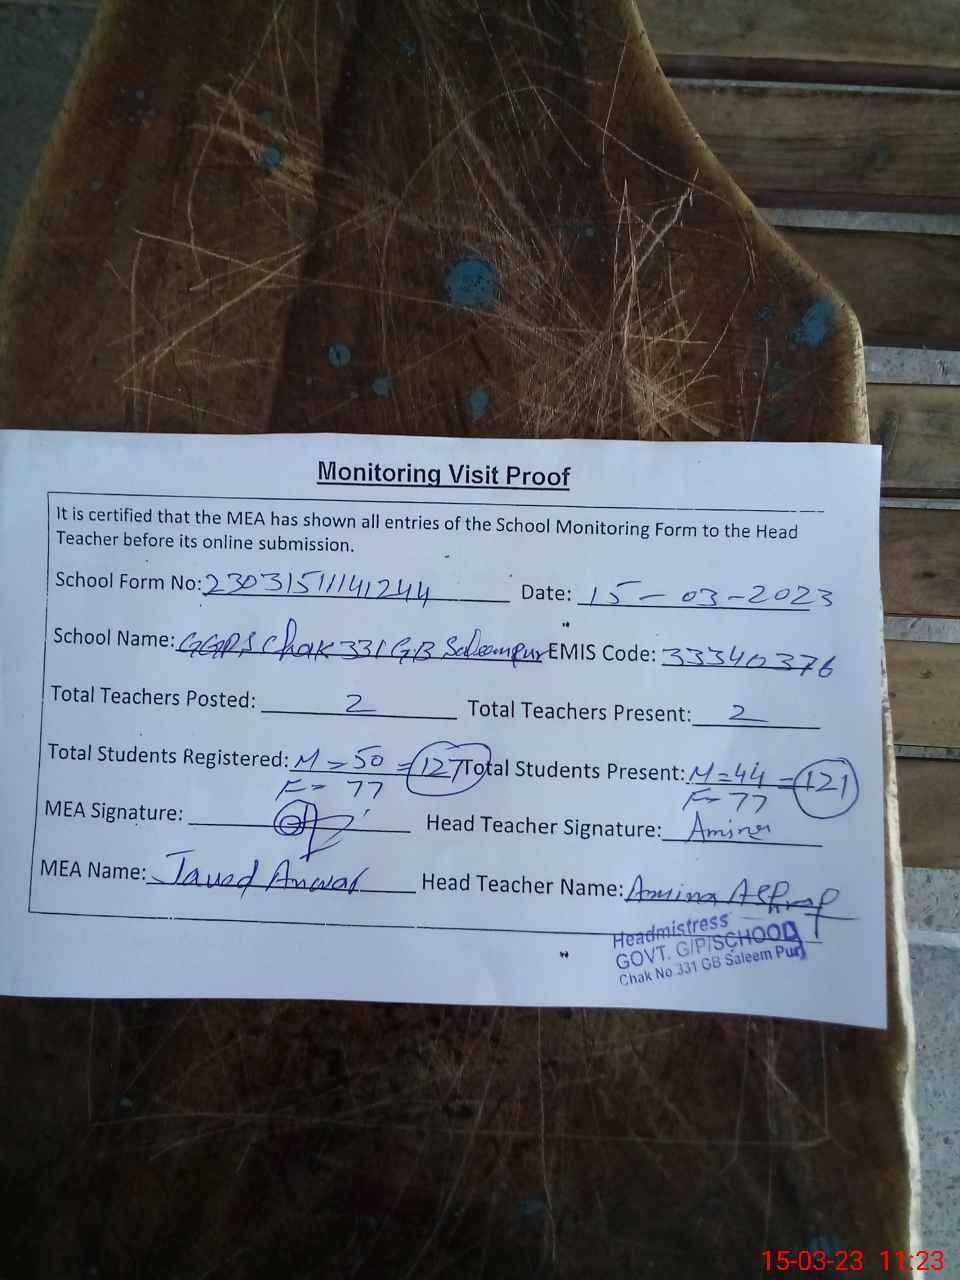 Monitoring Visit Proof
It is certified that the MEA has shown all entries of the School Monitoring Form to the Head
Teacher before its online submission.
School Form No: 23031511141244 Date: 15-03-2023
School Name: GGPS Chak 331 GB Saleempur EMIS Code: 33340376
Total Teachers Posted: 2 Total Teachers Present: 2
Total Students Registered: M = 50 = 127 Total Students Present: M=44 = 121
F = 77 F= 77
MEA Signature: Head Teacher Signature: Amina
MEA Name: Javed Anwar Head Teacher Name: Amina Ashraf
Headmistress
GOVT. G/P/SCHOOL
Chak No 331 GB Saleem Pur
15-03-23 11:23